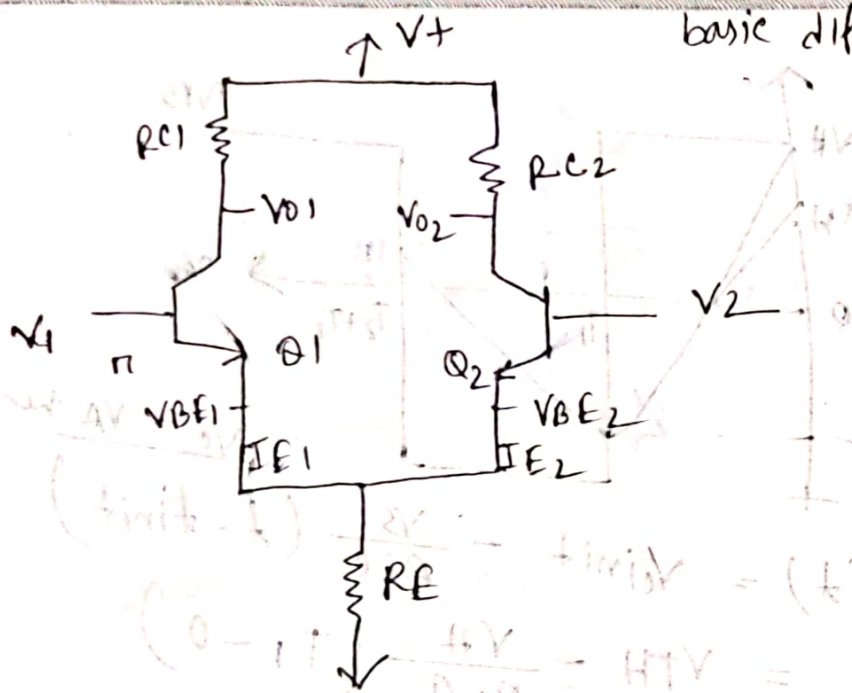 V+
basic dif
RC1
RC2
VO1
VO2
V1
Q1
Q2
V2
VBE1
VBE2
IE1
IE2
RE